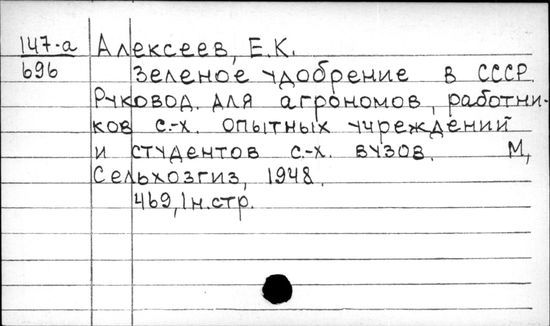 147-а Алексеев, Е.К.
696 Зеленое удобрение в СССР.
Руковод. для агрономов, работни-
ков с.-х. опытных учреждений
и студентов с.-х. вузов. М,
Сельхозгиз, 1948.
469, 1 н.стр.